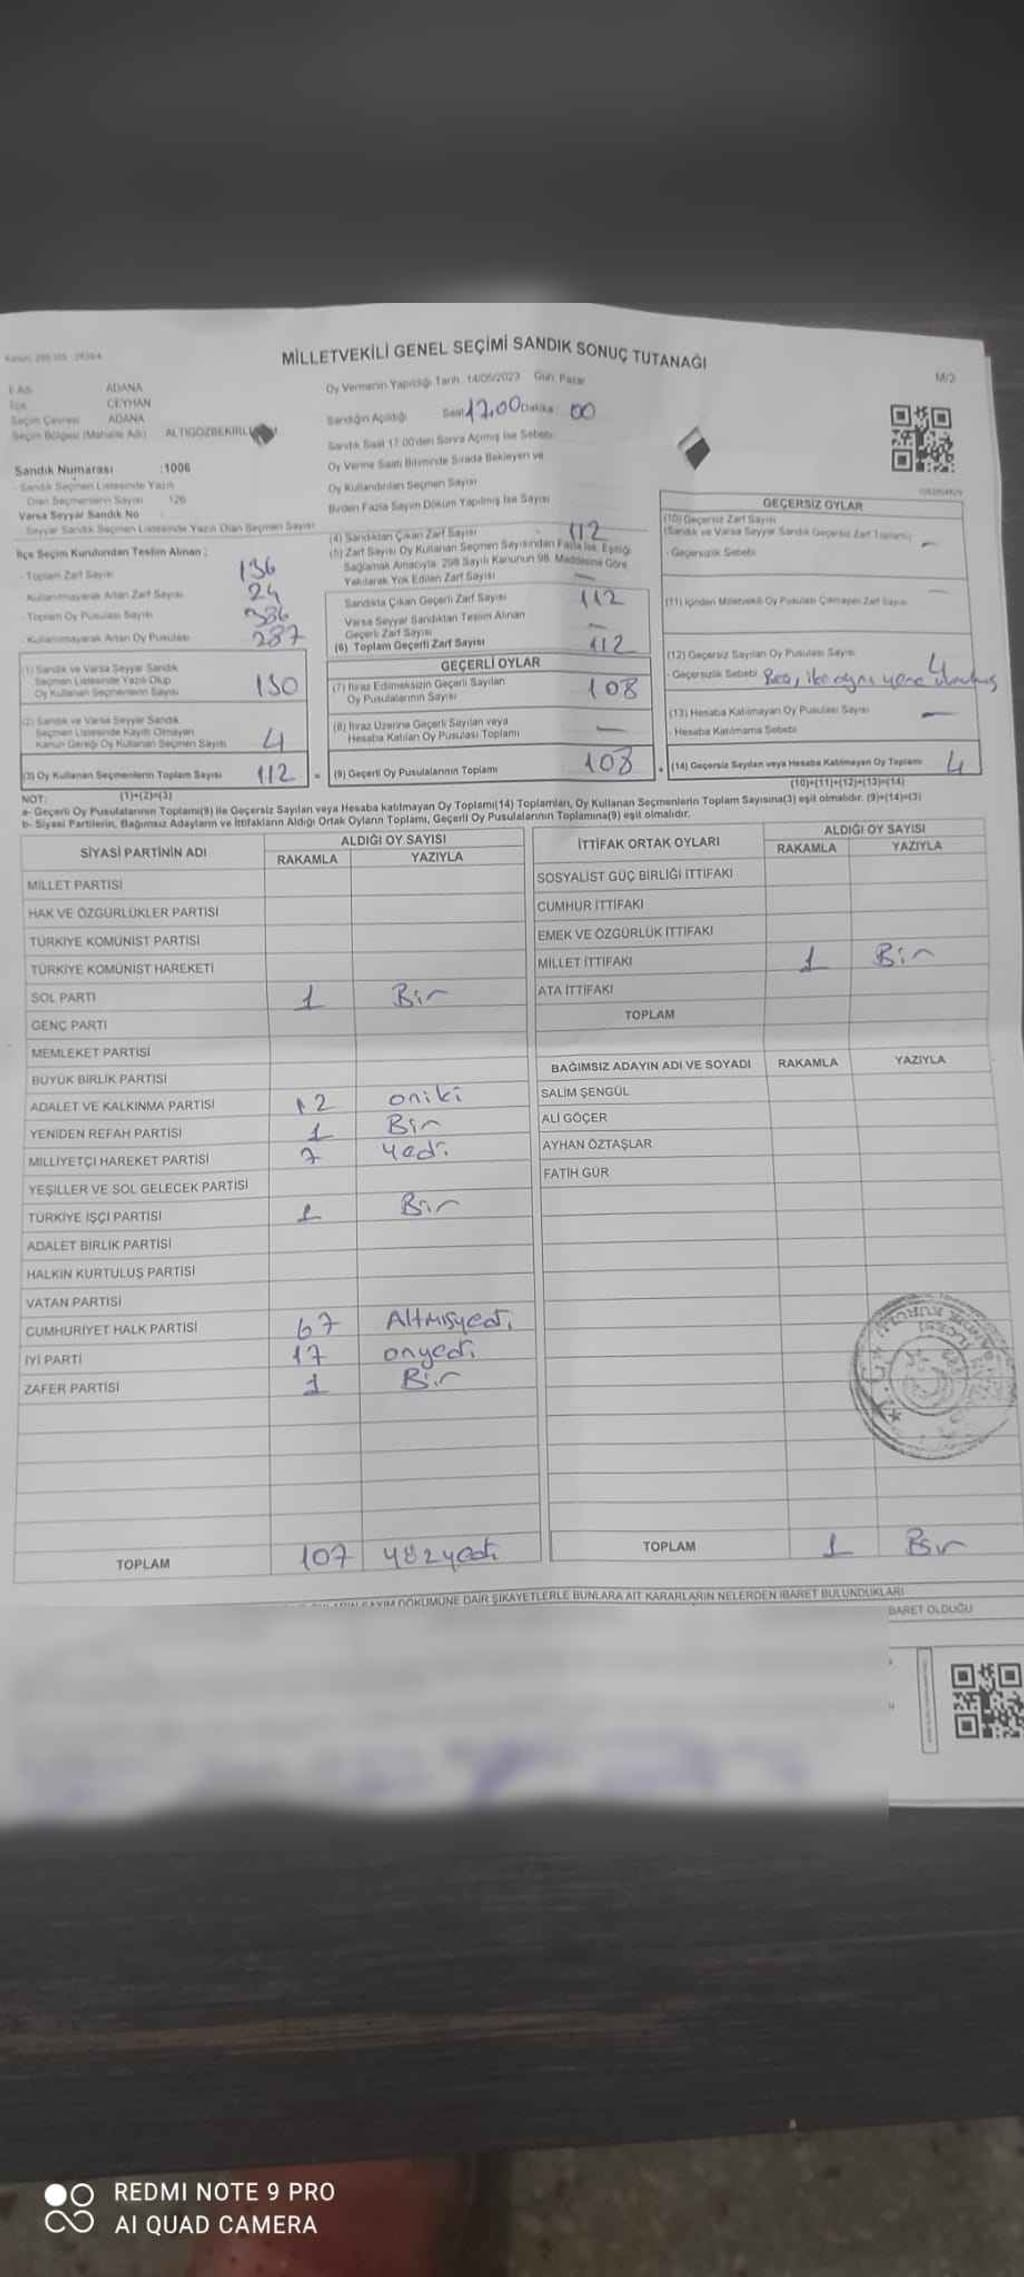 MİLLETVEKİLİ GENEL SEÇİMİ SANDIK SONUÇ TUTANAĞI
M/2
ADANA
İlçe CEYHAN
Seçim Çevresi ADANA
Seçim Bölgesi (Mahalle Adı)
Sandık Numarası :1006
- Sandık Seçmen Listesinde Yazılı
Olan Seçmenlerin Sayısı 126
Varsa Seyyar Sandık No
Seyyar Sandık Seçmen Listesinde Yazılı Olan Seçmen Sayısı
Oy Vermenin Yapıldığı Tarih: 14/05/2023 Gün: Pazar
Sandığın Açıldığı Saat 17.00 Dakika 00
Sandık Saat 17:00'den Sonra Açılmış İse Sebebi
Oy Verme Saati Bitiminde Sırada Bekleyen ve
Oy Kullandırılan Seçmen Sayısı
Birden Fazla Sayım Döküm Yapılmış İse Sayısı
İlçe Seçim Kurulundan Teslim Alınan :
- Toplam Zarf Sayısı 136
- Kullanılmayarak Artan Zarf Sayısı 24
- Toplam Oy Pusulası Sayısı
- Kullanılmayarak Artan Oy Pusulası 287
(1) Sandık ve Varsa Seyyar Sandık
Seçmen Listesinde Yazılı Olup
Oy Kullanan Seçmenlerin Sayısı
(2) Sandık ve Varsa Seyyar Sandık
Seçmen Listesinde Kayıtlı Olmayan
Kanun Gereği Oy Kullanan Seçmen Sayısı 4
(3) Oy Kullanan Seçmenlerin Toplam Sayısı 112
(4) Sandıktan Çıkan Zarf Sayısı 112
(5) Zarf Sayısı Oy Kullanan Seçmen Sayısından Fazla İse, Eşitliği
Sağlamak Amacıyla, 298 Sayılı Kanunun 98. Maddesine Göre
Yakılarak Yok Edilen Zarf Sayısı —
Sandıkta Çıkan Geçerli Zarf Sayısı 112
Varsa Seyyar Sandıktan Teslim Alınan
Geçerli Zarf Sayısı —
(6) Toplam Geçerli Zarf Sayısı 112
GEÇERLİ OYLAR
(7) İtiraz Edilmeksizin Geçerli Sayılan
Oy Pusulalarının Sayısı 108
(8) İtiraz Üzerine Geçerli Sayılan veya
Hesaba Katılan Oy Pusulası Toplamı —
= (9) Geçerli Oy Pusulalarının Toplamı 108
GEÇERSİZ OYLAR
(10) Geçersiz Zarf Sayısı
(Sandık ve Varsa Seyyar Sandık Geçersiz Zarf Toplamı) —
- Geçersizlik Sebebi
(11) İçinden Milletvekili Oy Pusulası Çıkmayan Zarf Sayısı —
(12) Geçersiz Sayılan Oy Pusulası Sayısı 4
- Geçersizlik Sebebi
(13) Hesaba Katılmayan Oy Pusulası Sayısı —
- Hesaba Katılmama Sebebi
+ (14) Geçersiz Sayılan veya Hesaba Katılmayan Oy Toplamı 4
NOT: (1)+(2)=(3) (10)+(11)+(12)+(13)=(14)
a- Geçerli Oy Pusulalarının Toplamı(9) ile Geçersiz Sayılan veya Hesaba katılmayan Oy Toplamı(14) Toplamları, Oy Kullanan Seçmenlerin Toplam Sayısına(3) eşit olmalıdır. (9)+(14)=(3)
b- Siyasi Partilerin, Bağımsız Adayların ve İttifakların Aldığı Ortak Oyların Toplamı, Geçerli Oy Pusulalarının Toplamına(9) eşit olmalıdır.
SİYASİ PARTİNİN ADI ALDIĞI OY SAYISI
RAKAMLA YAZIYLA
MİLLET PARTİSİ
HAK VE ÖZGÜRLÜKLER PARTİSİ
TÜRKİYE KOMÜNİST PARTİSİ
TÜRKİYE KOMÜNİST HAREKETİ
SOL PARTİ 1 Bir
GENÇ PARTİ
MEMLEKET PARTİSİ
BÜYÜK BİRLİK PARTİSİ
ADALET VE KALKINMA PARTİSİ 12 oniki
YENİDEN REFAH PARTİSİ 1 Bir
MİLLİYETÇİ HAREKET PARTİSİ 7 yedi
YEŞİLLER VE SOL GELECEK PARTİSİ
TÜRKİYE İŞÇİ PARTİSİ 1 Bir
ADALET BİRLİK PARTİSİ
HALKIN KURTULUŞ PARTİSİ
VATAN PARTİSİ
CUMHURİYET HALK PARTİSİ 67 Altmışyedi
İYİ PARTİ 17 onyedi
ZAFER PARTİSİ 1 Bir
TOPLAM 107 yüzyedi
İTTİFAK ORTAK OYLARI ALDIĞI OY SAYISI
RAKAMLA YAZIYLA
SOSYALİST GÜÇ BİRLİĞİ İTTİFAKI
CUMHUR İTTİFAKI
EMEK VE ÖZGÜRLÜK İTTİFAKI
MİLLET İTTİFAKI 1 Bir
ATA İTTİFAKI
TOPLAM
BAĞIMSIZ ADAYIN ADI VE SOYADI RAKAMLA YAZIYLA
SALİM ŞENGÜL
ALİ GÖÇER
AYHAN ÖZTAŞLAR
FATİH GÜR
TOPLAM 1 Bir
SAYIM DÖKÜMÜNE DAİR ŞİKAYETLERLE BUNLARA AİT KARARLARIN NELERDEN İBARET BULUNDUKLARI
BARET OLDUĞU
REDMI NOTE 9 PRO
AI QUAD CAMERA